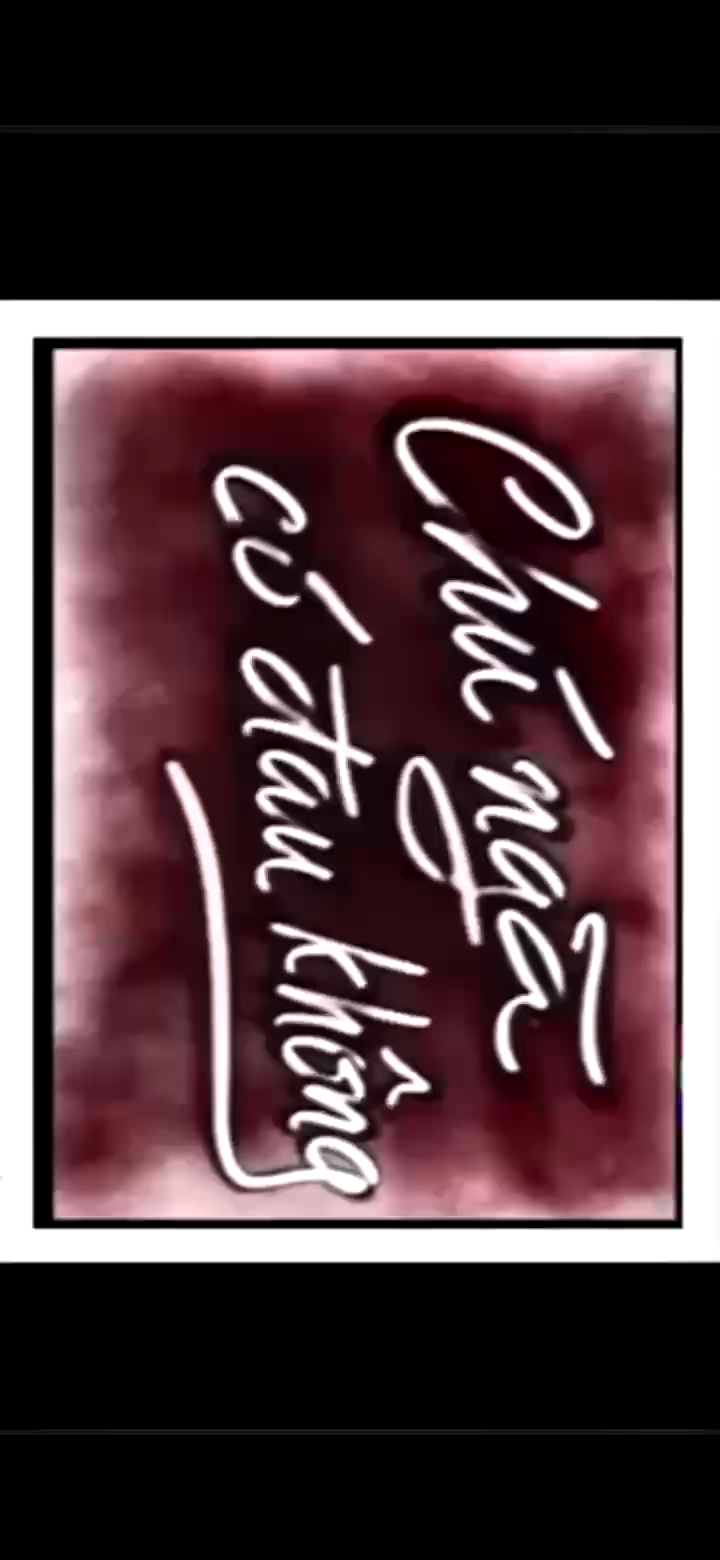 Chú ngã
có đau không